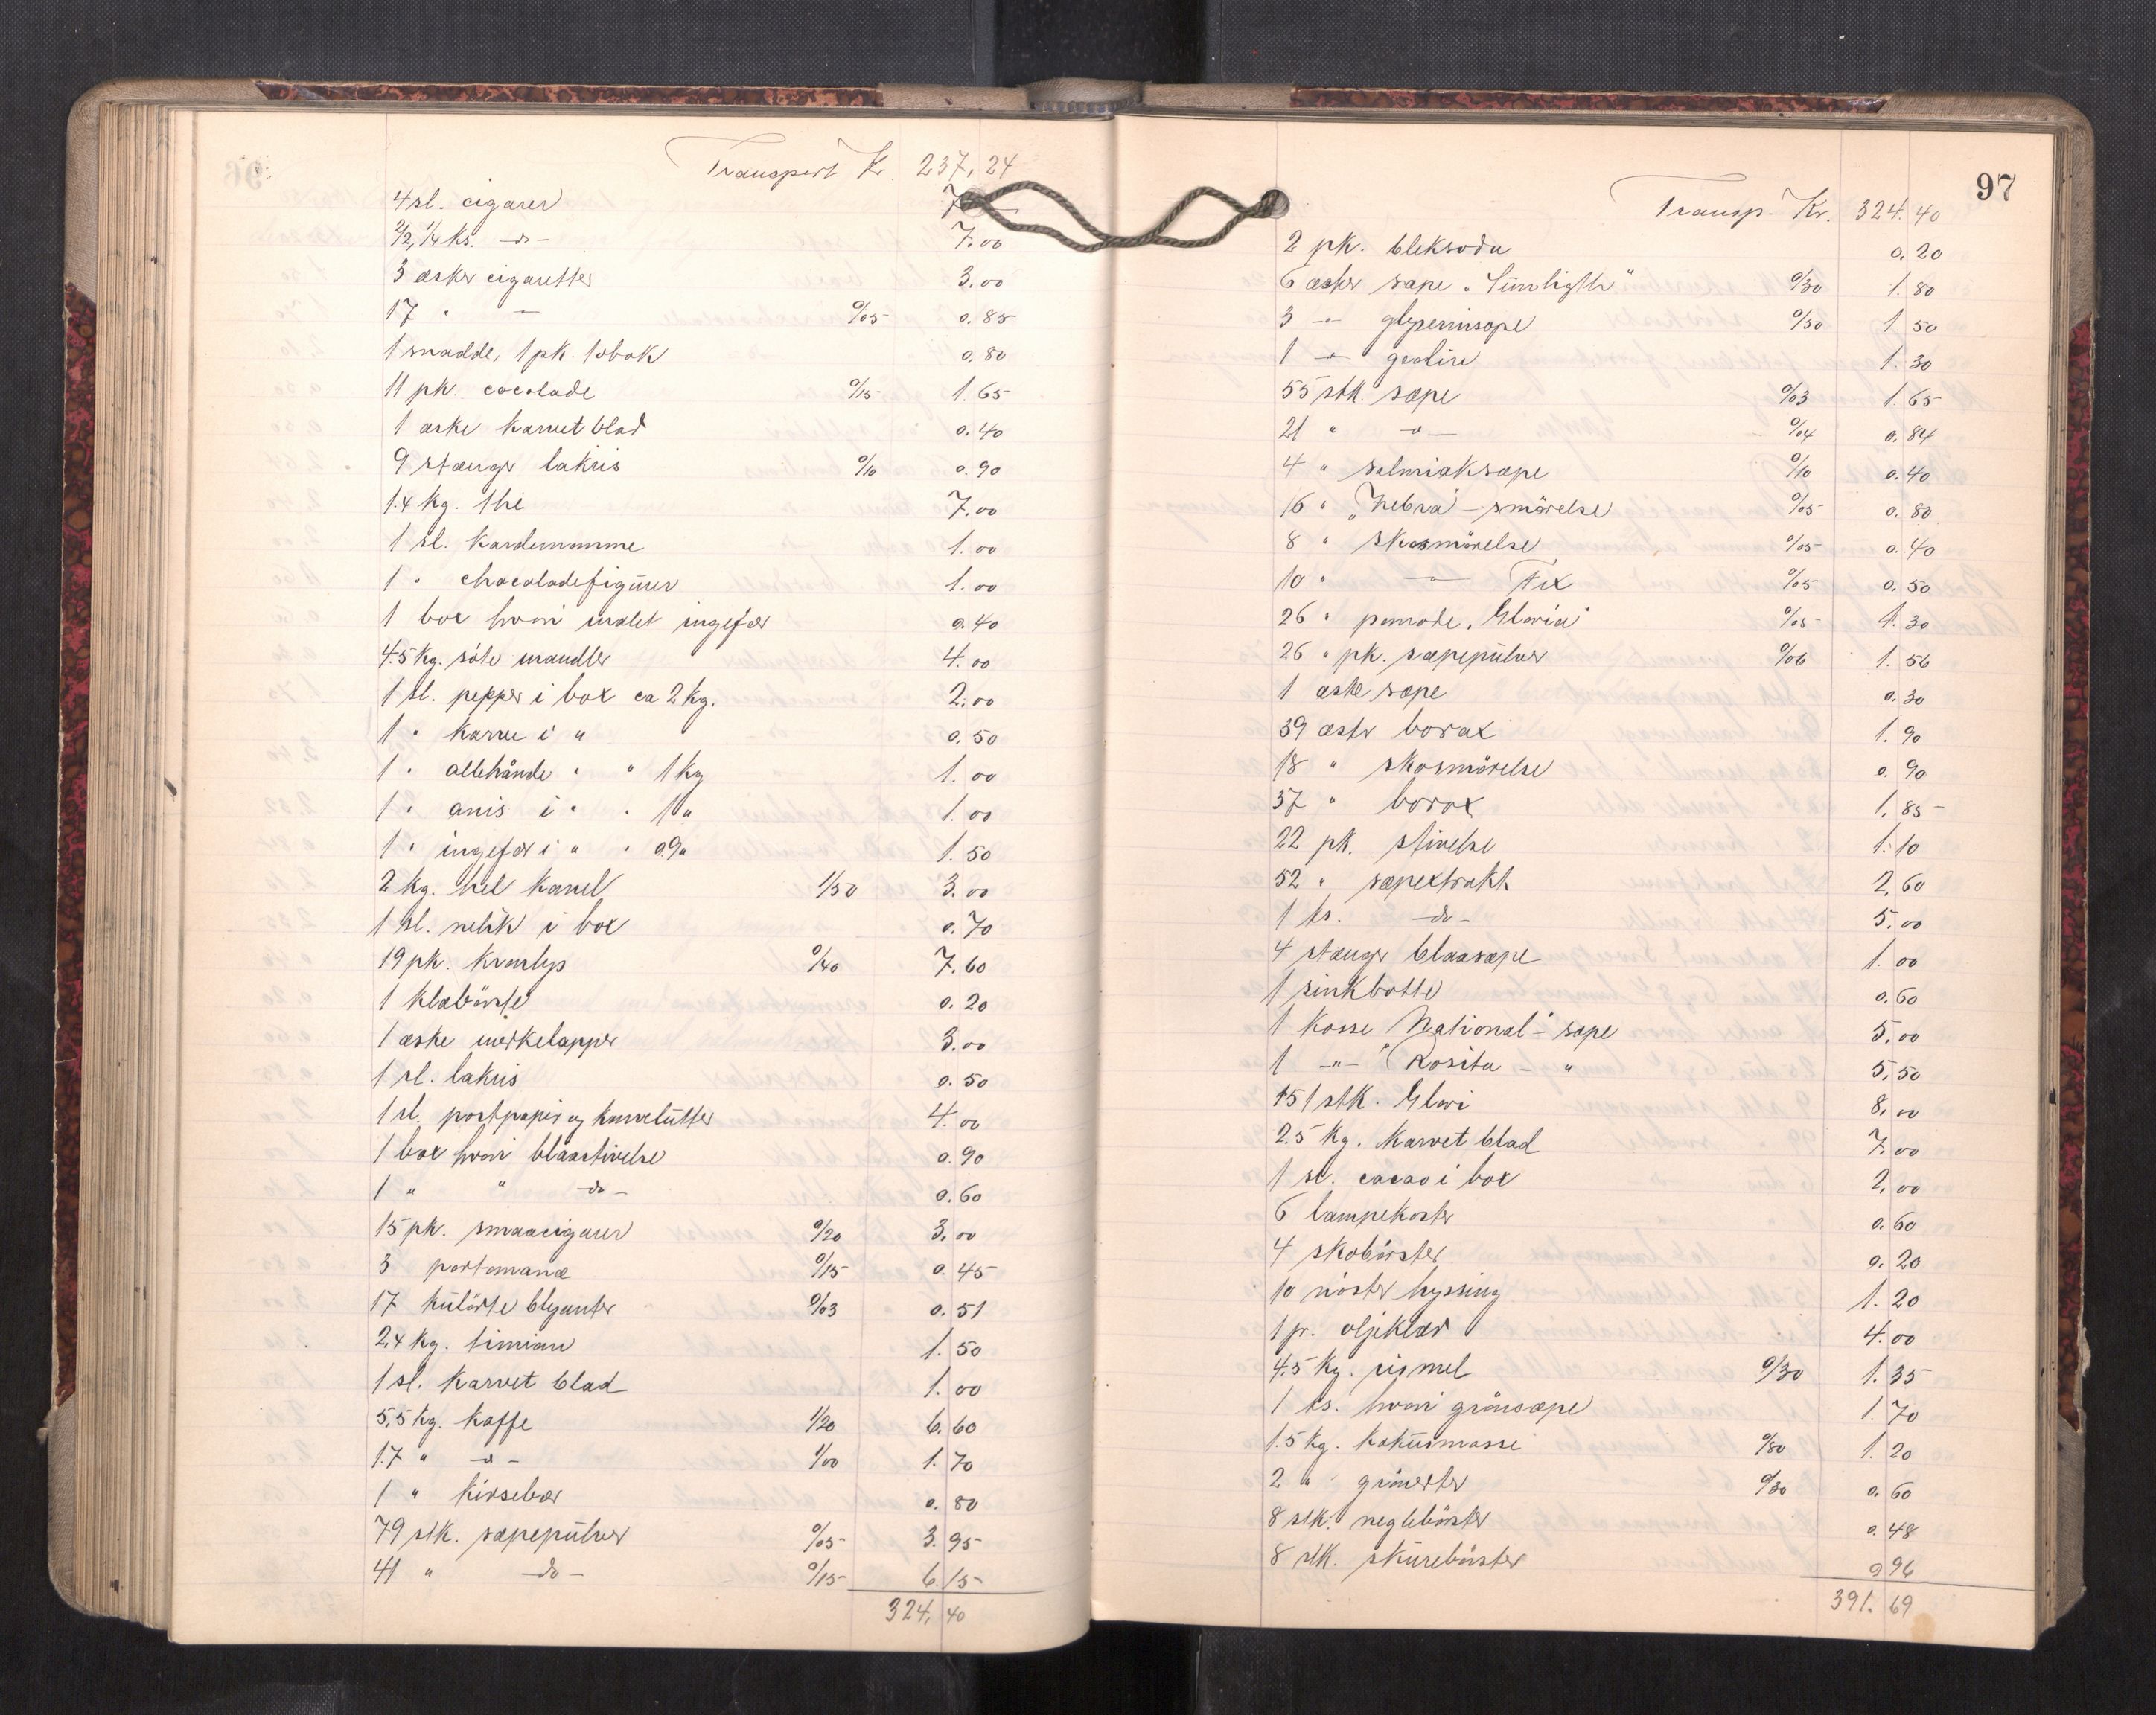 Transport Kr. 237,24
4 sl. cigarer 7
2/2, 1/4 ks. -do- 7.00
3 æsker cigaretter 3.00
17 " — 0/05 0.85
1 snadde, 1 pk. tobak 0.80
11 pk. cocolade 0/15 1.65
1 æske karvet blad 0.40
9 stænger lakris 0/10 0.90
1.4 kg. the 7.00
1 sl. kardemomme 1.00
1 " chocoladefigurer 1.00
1 box hvori malet ingefær 0.40
4.5 kg. söte mandler 4.00
1 sl. pepper i box ca 2 kg. 2.00
1 " karve i " 0.50
1 " allehånde " " 1 kg 1.00
1 " anis i " " 1 " 1.00
1 " ingefær i " " 0.9 " 1.50
2 kg. hel kanel 1/50 3.00
1 sl. nellik i box 0.70
19 pk. kronlys 0/40 7.60
1 klæbörste 0.20
1 æske merkelapper 3.00
1 sl. lakris 0.50
1 sl. postpapir og konvolutter 4.00
1 box hvori blaastivelse 0.90
1 " " -do- 0.60
15 pk. smaacigarer 0/20 3.00
3 portemonæ 0/15 0.45
17 kulörte blyanter 0/03 0.51
2,4 kg. timian 1.50
1 sl. karvet blad 1.00
5,5 kg. kaffe 1/20 6.60
1.7 " -do- 1/00 1.70
1 " kirsebær 0.80
79 stk. sæpepulver 0/05 3.95
41 " -do- 0/15 6.15
324,40
97
Transp. Kr. 324.40
2 pk. bleksoda 0.20
6 æsker sæpe "Sunligth" 0/30 1.80
3 -"- glyserinsæpe 0/50 1.50
1 -"- 1.30
55 stk. sæpe 0/03 1.65
21 " -do- 0/04 0.84
4 " salmiaksæpe 0/10 0.40
16 " "Zebra"-smörelse 0/05 0.80
8 " skosmörelse 0/05 0.40
10 " -"- Fix 0/05 0.50
26 " pomade "Gloria" 0/05 1.30
26 " pk. sæpepulver 0/06 1.56
1 æske sæpe 0.30
39 æsker borax 1.90
18 " skosmörelse 0.90
37 " borax 1.85
22 pk. stivelse 1.10
52 " sæpextrakt 2.60
1 ks. -do- 5.00
4 stænger blaasæpe 1.00
1 sinkbötte 0.60
1 kasse "National"-sæpe 5.00
1 -"- "Rosita - " 5.50
151 stk. Glori 8.00
2.5 kg. karvet blad 7.00
1 sl. cacao i box 2.00
6 lampekoster 0.60
4 skobörster 0.20
10 nöster hyssing 1.20
1 pr. oljeklær 4.00
4.5 kg. rismel 0/30 1.35
1 ks. hvori grönsæpe 1.70
1.5 kg. kokusmasse 0/80 1.20
2 " grönerter 0/30 0.60
8 stk.neglebörster 0.48
8 stk. skurebörster 0.96
391.69